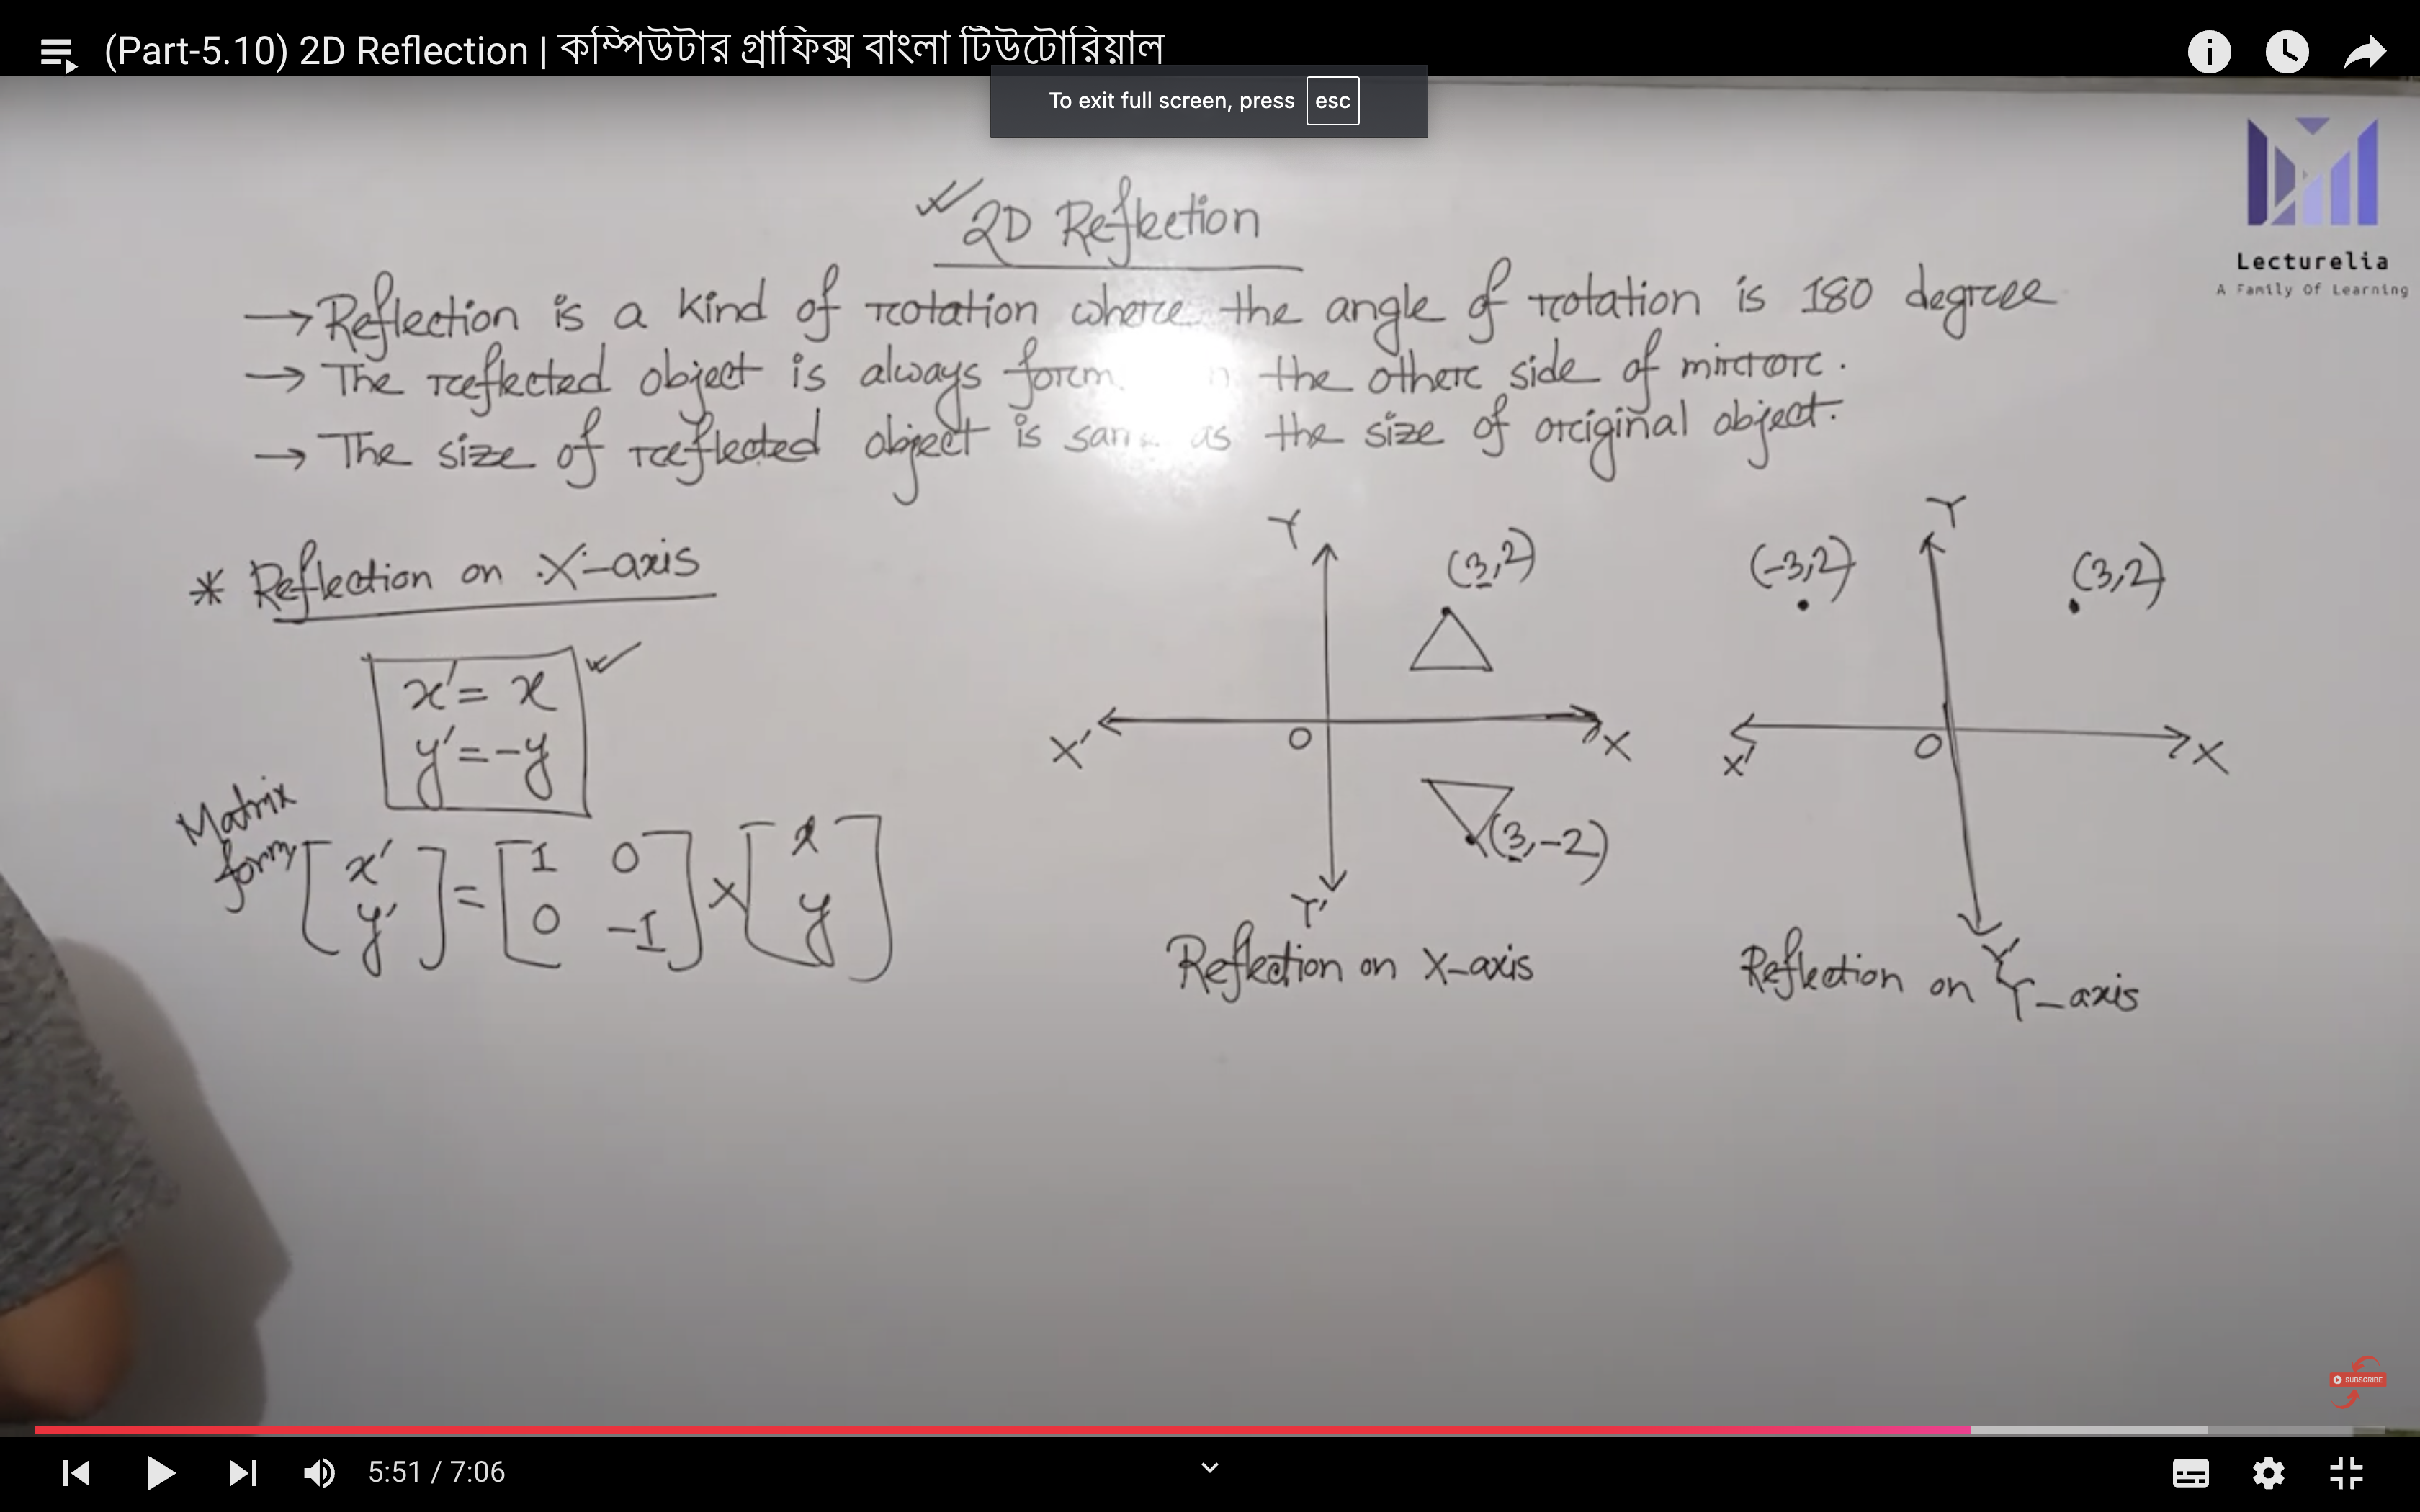 (Part-5.10) 2D Reflection | কম্পিউটার গ্রাফিক্স বাংলা টিউটোরিয়াল
To exit full screen, press esc
Lecturelia
A Family Of Learning
2D Reflection
→ Reflection is a kind of rotation where the angle of rotation is 180 degree
→ The reflected object is always form the other side of mirror.
→ The size of reflected object is as the size of original object.
* Reflection on X-axis
x' = x
y' = -y
Matrix form
[x' y'] = [1 0 0 -1] × [x y]
Y
(3,2)
X' O X
(3,-2)
Y'
Reflection on X-axis
Y
(-3,2) (3,2)
X' O X
Y'
Reflection on Y-axis
SUBSCRIBE
5:51 / 7:06